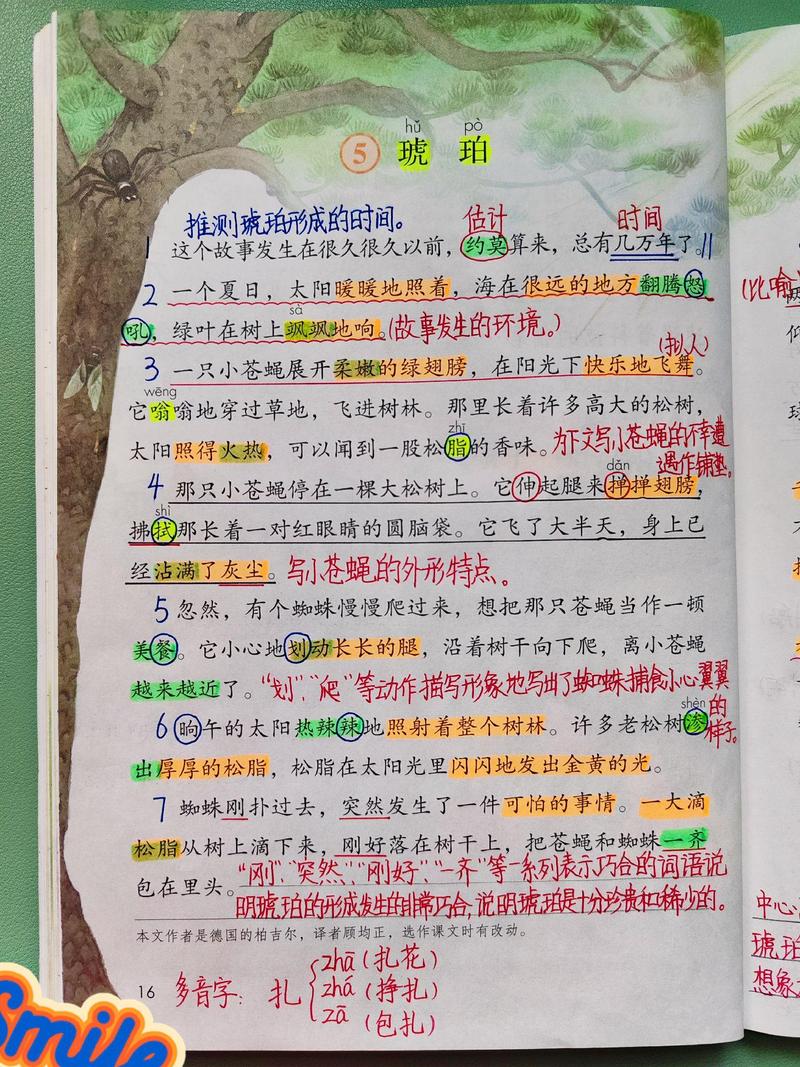 hǔ pò
5 琥珀
推测琥珀形成的时间。 估计 时间
1 这个故事发生在很久很久以前，约莫算来，总有几万年了。//
2 一个夏日，太阳暖暖地照着，海在很远的地方翻腾怒
sà
吼，绿叶在树上飒飒地响。(故事发生的环境。)
(拟人)
3 一只小苍蝇展开柔嫩的绿翅膀，在阳光下快乐地飞舞。
wēng
它嗡嗡地穿过草地，飞进树林。那里长着许多高大的松树，
zhī
太阳照得火热，可以闻到一股松脂的香味。为下文写小苍蝇的不幸遭
遇作铺垫。
dǎn
4 那只小苍蝇停在一棵大松树上。它伸起腿来掸掸翅膀，
shì
拂拭那长着一对红眼睛的圆脑袋。它飞了大半天，身上已
经沾满了灰尘。写小苍蝇的外形特点。
5 忽然，有个蜘蛛慢慢爬过来，想把那只苍蝇当作一顿
美餐。它小心地划动长长的腿，沿着树干向下爬，离小苍蝇
越来越近了。“划”、“爬”等动作描写形象地写出了蜘蛛捕食小心翼翼
的
样子。
shèn
6 晌午的太阳热辣辣地照射着整个树林。许多老松树渗
出厚厚的松脂，松脂在太阳光里闪闪地发出金黄的光。
7 蜘蛛刚扑过去，突然发生了一件可怕的事情。一大滴
松脂从树上滴下来，刚好落在树干上，把苍蝇和蜘蛛一齐
包在里头。“刚”、“突然”、“刚好”、“一齐”等一系列表示巧合的词语说
明琥珀的形成发生的非常巧合，说明琥珀是十分珍贵和稀少的。
本文作者是德国的柏吉尔，译者顾均正，选作课文时有改动。
16 多音字：扎 zhā (扎花)
zhá (挣扎)
zā (包扎)
Smile
(比喻
中心
琥珀
想象